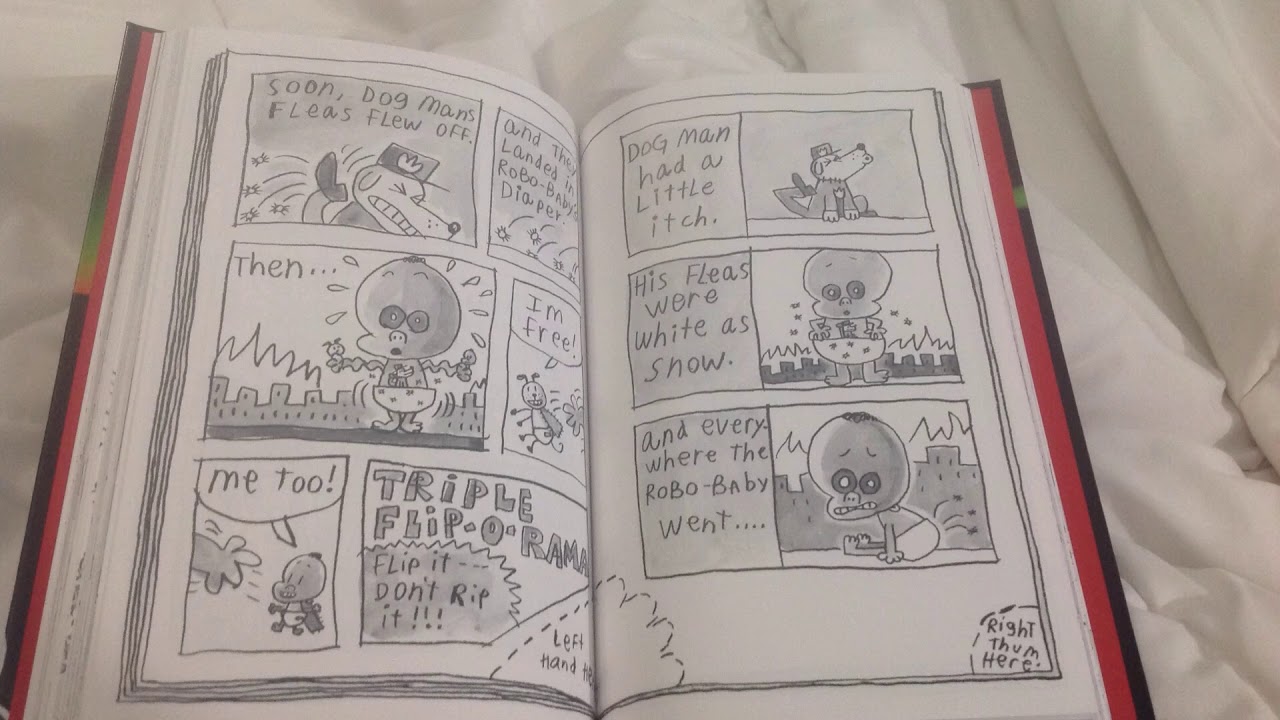 Soon, Dog Mans
Fleas Flew off.
and they
Landed in
Robo-Baby's
Diaper.
Then...
Im
free!
me too!
TRIPLE
FLIP-O-RAMA
FLip it ---
Don't Rip
it!!!
Left
Hand
DOG man
had a
Little
itch.
His FLeas
were
white as
Snow.
and every-
where the
ROBO-BABY
went....
Right
Thum
Here.